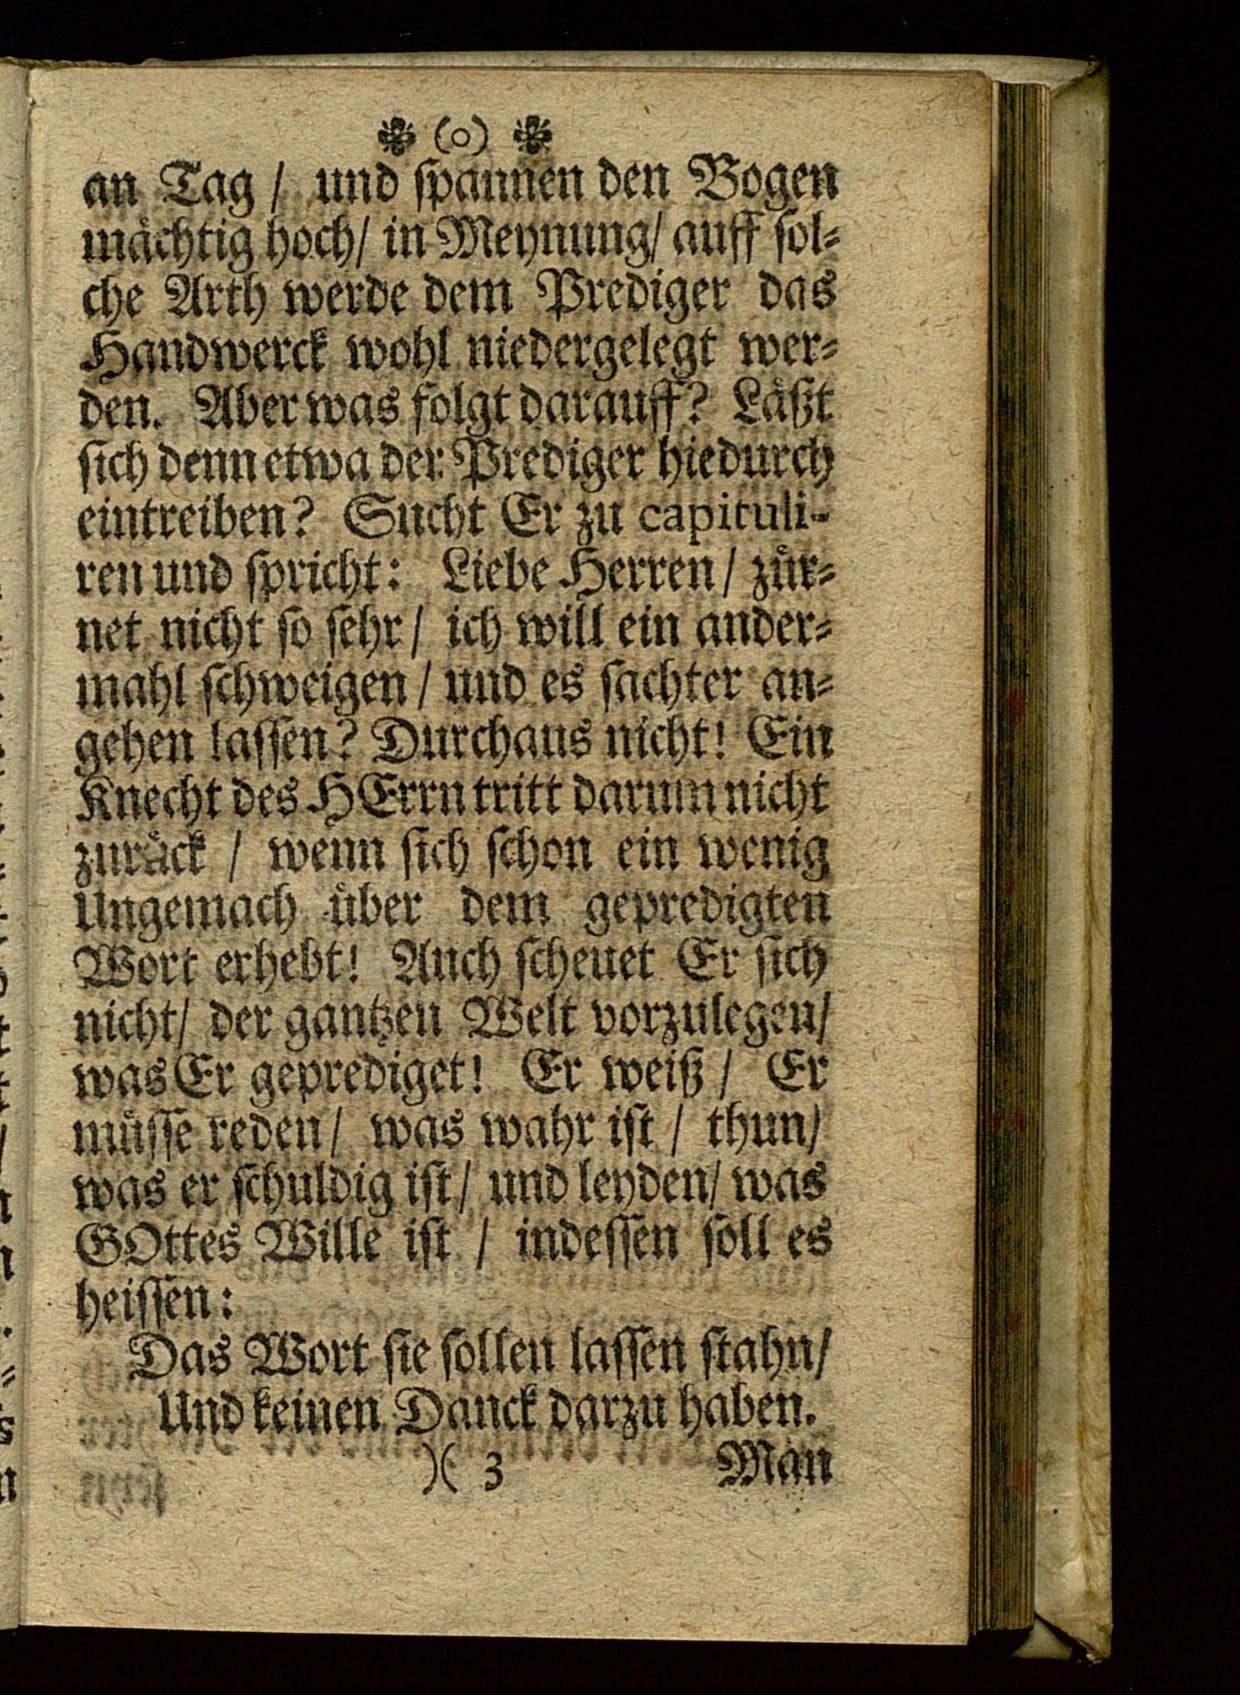 ❃ (o) ❃
an Tag / und ſpannen den Bogen
maͤchtig hoch/ in Meynung/ auff ſol⸗
che Arth werde dem Prediger das
Handwerck wohl niedergelegt wer⸗
den. Aber was folgt darauff? Laͤßt
ſich denn etwa der Prediger hiedurch
eintreiben? Sucht Er zu capituli-
ren und ſpricht: Liebe Herren/ zuͤr⸗
net nicht ſo ſehr/ ich will ein ander⸗
mahl ſchweigen/ und es ſachter an⸗
gehen laſſen? Durchaus nicht! Ein
Knecht des HErrn tritt darum nicht
zuruͤck / wenn ſich ſchon ein wenig
Ungemach uͤber dem gepredigten
Wort erhebt! Auch ſcheuet Er ſich
nicht/ der gantzen Welt vorzulegen/
was Er geprediget! Er weiß/ Er
muͤſſe reden/ was wahr iſt/ thun/
was er ſchuldig iſt/ und leyden/ was
GOttes Wille iſt / indeſſen ſoll es
heiſſen:
Das Wort ſie ſollen laſſen ſtahn/
Und keinen Danck darzu haben.
)( 3 Man